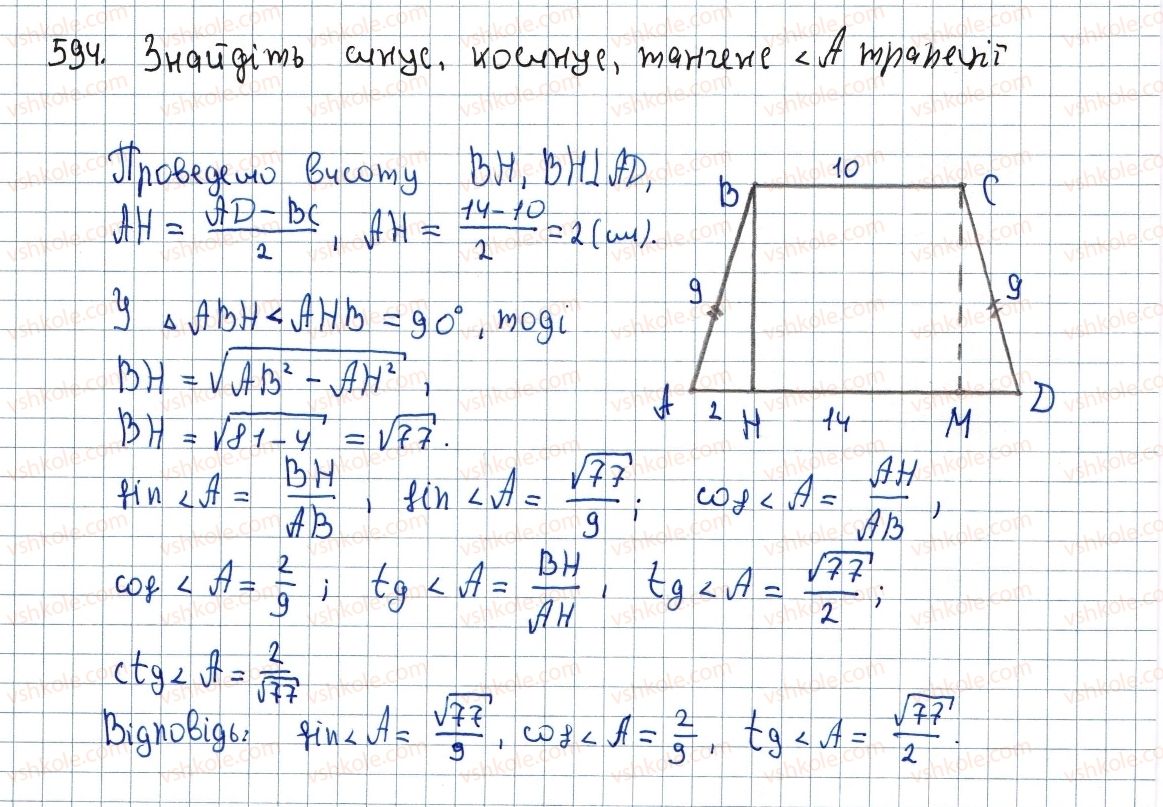 594. Знайдіть синус, косинус, тангенс <A трапеції
Проведемо висоту BH, BH⊥AD,
AH = (AD - BC)/2, AH = (14-10)/2 = 2 (см).
У ▵ ABH < AHB = 90°, тоді
BH = √(AB² - AH²),
BH = √(81-4) = √77.
sin < A = BH/AB, sin < A = √77/9; cos < A = AH/AB,
cos < A = 2/9; tg < A = BH/AH, tg < A = √77/2;
ctg < A = 2/√77
Відповідь: sin < A = √77/9, cos < A = 2/9, tg < A = √77/2.
B 10 C
9 9
A 2 H 14 M D
vshkole.com